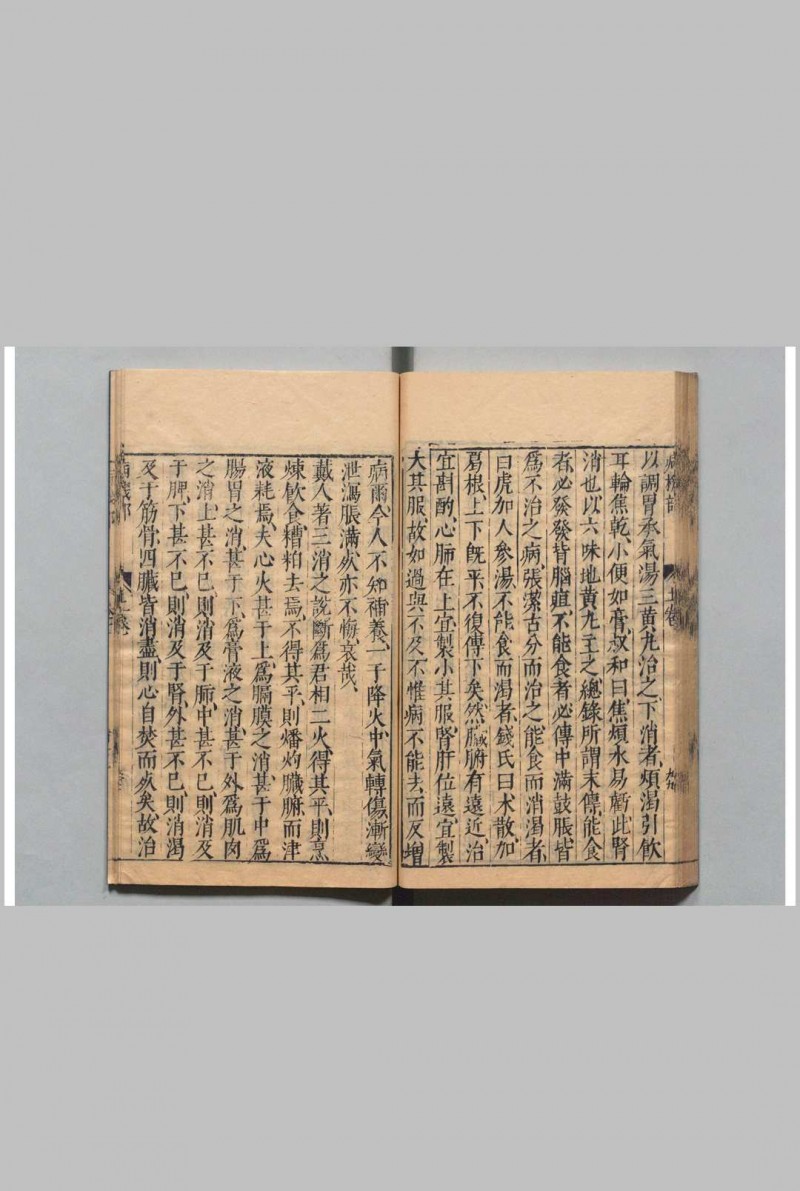 以調胃承氣湯三黃丸治之下消者煩渴引飲
耳輪焦乾小便如膏叔和曰焦煩水易虧此腎
消也以六味地黃丸主之總錄所謂末傳能食
者必發背腦疽不能食者必傳中滿鼓脹皆
爲不治之病張潔古分而治之能食而渴者
曰虎加人參湯不能食而渴者錢氏曰术散加
葛根上下既平不復傳下矣然臟腑有遠近治
宜斟酌心肺在上宜製小其服腎肝位遠宜製
大其服故如過與不及不惟病不能去而反增
病爾今人不知補養一于降火中氣轉傷漸變
泄瀉脹滿死亦不悔哀哉
戴人著三消之說斷爲君相二火得其平則烹
煉飲食糟粕去焉不得其平則燔灼臟腑而津
液耗焉夫心火甚于上爲膈膜之消甚于中爲
腸胃之消甚于下爲膏液之消甚于外爲肌肉
之消上甚不已則消及于肺中甚不已則消及
于脾下甚不已則消及于腎外甚不已則消渴
及于筋骨四臟皆消盡則心自焚而死矣故治
病機部
上卷